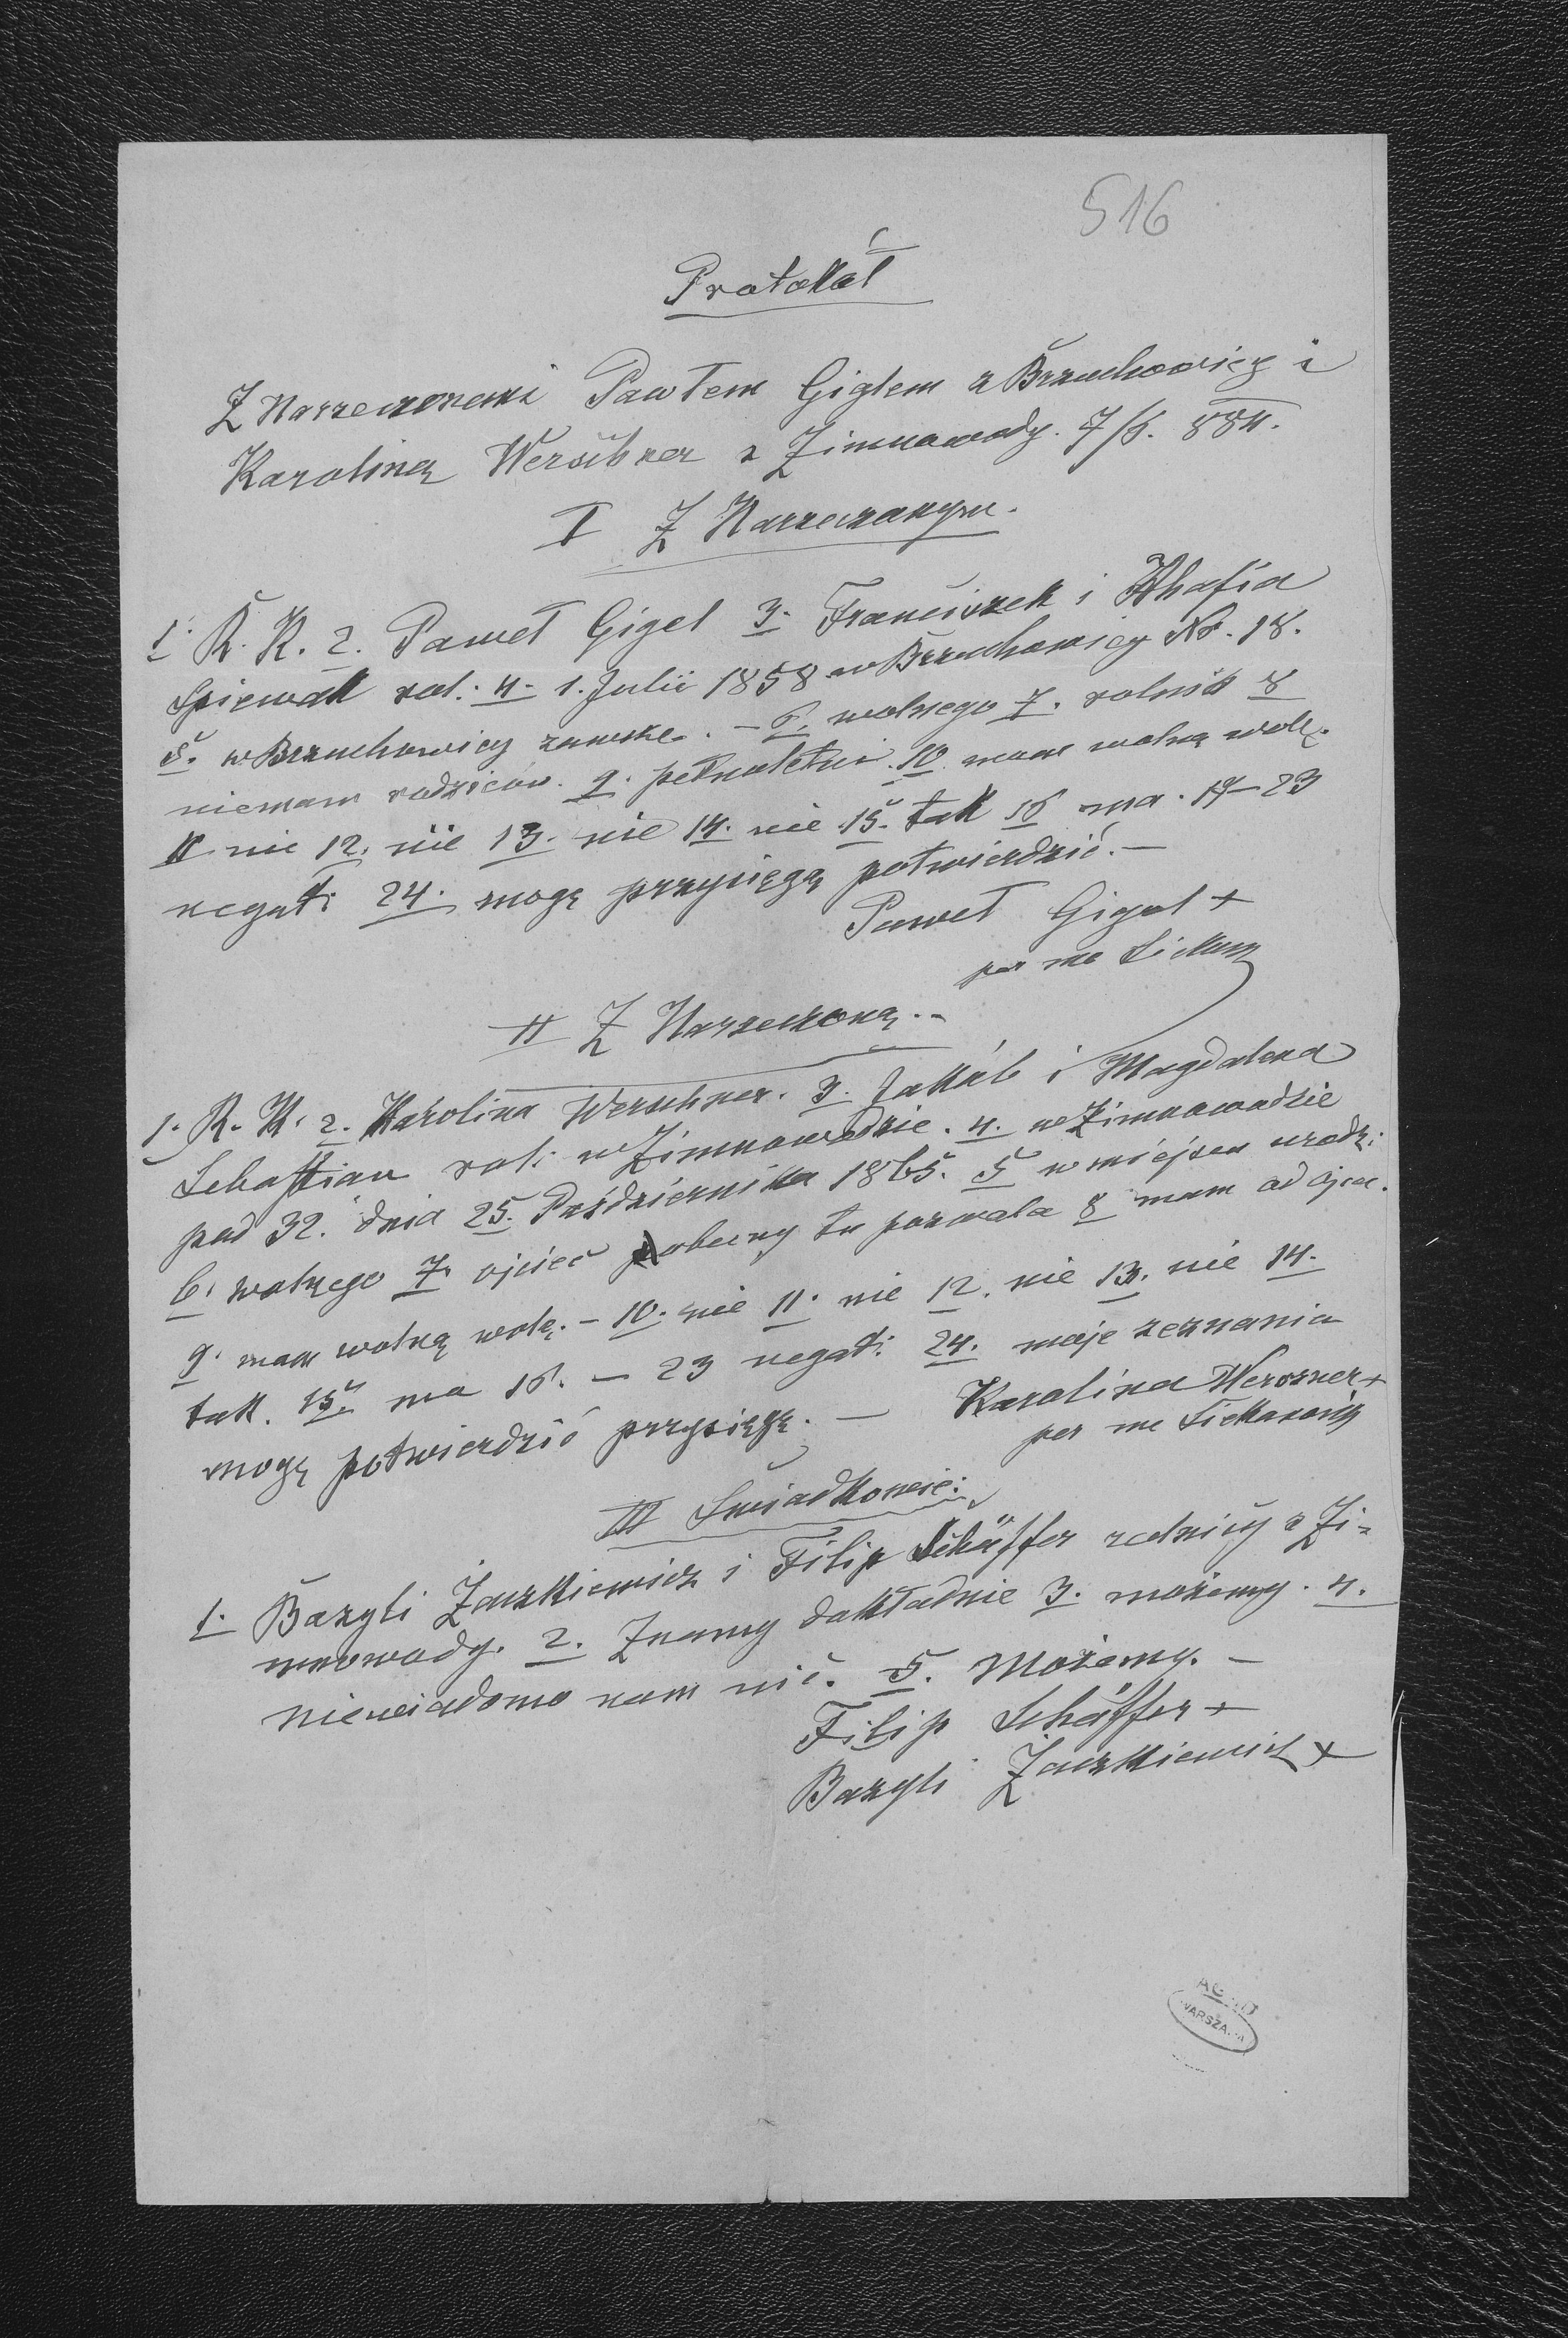 516
Protokół
Z Narzeczonemi Pawłem Giglem z Brzuchowicy i
Karoliną Werschner z Zimnowody. 7/6. 884.
I Z Narzeczonym.
1. R. K. 2. Paweł Gigel 3. Franciszek i Khafia
Spiewak rol. 4. 1. Julii 1858 w Brzuchowicy Nr. 18.
5. w Brzuchowicy zawsze. – 6. wolnego 7. rolnik 8
niemam rodziców. 9. pełnoletni. 10. mam wolną wolę.
11 nie 12. nie 13. nie 14. nie 15. tak 16 ma. 17–23
negat: 24. mogę przysięgą potwierdzić. –
Paweł Gigel +
per me
II Z Narzeczoną. –
1. R. K. 2. Karolina Werschner. 3. Jakób i Magdalena
Sebastian rol: w Zimnowodzie. 4. w Zimnowodzie
pod 32. dnia 25. Października 1865. 5 w miejscu urodz:
6. wolnego 7. ojciec obecny tu pozwala 8 mam od ojca.
9. mam wolną wolę. – 10. nie 11. nie 12. nie 13. nie 14.
tak. 15. ma 16. – 23 negat: 24. moje zeznania
mogę potwierdzić przysięgą. – Karolina Werszner +
per me
III Świadkowie:
1. Bazyli Zaczkiewicz i Filip Schäffer rolnicy z Zi-
mnowody. 2. Znamy dokładnie 3. możemy. 4.
niewiadomo nam nic. 5. Możemy. –
Filip Schäffer +
Bazyli Zaczkiewicz +
AGAD
WARSZAWA